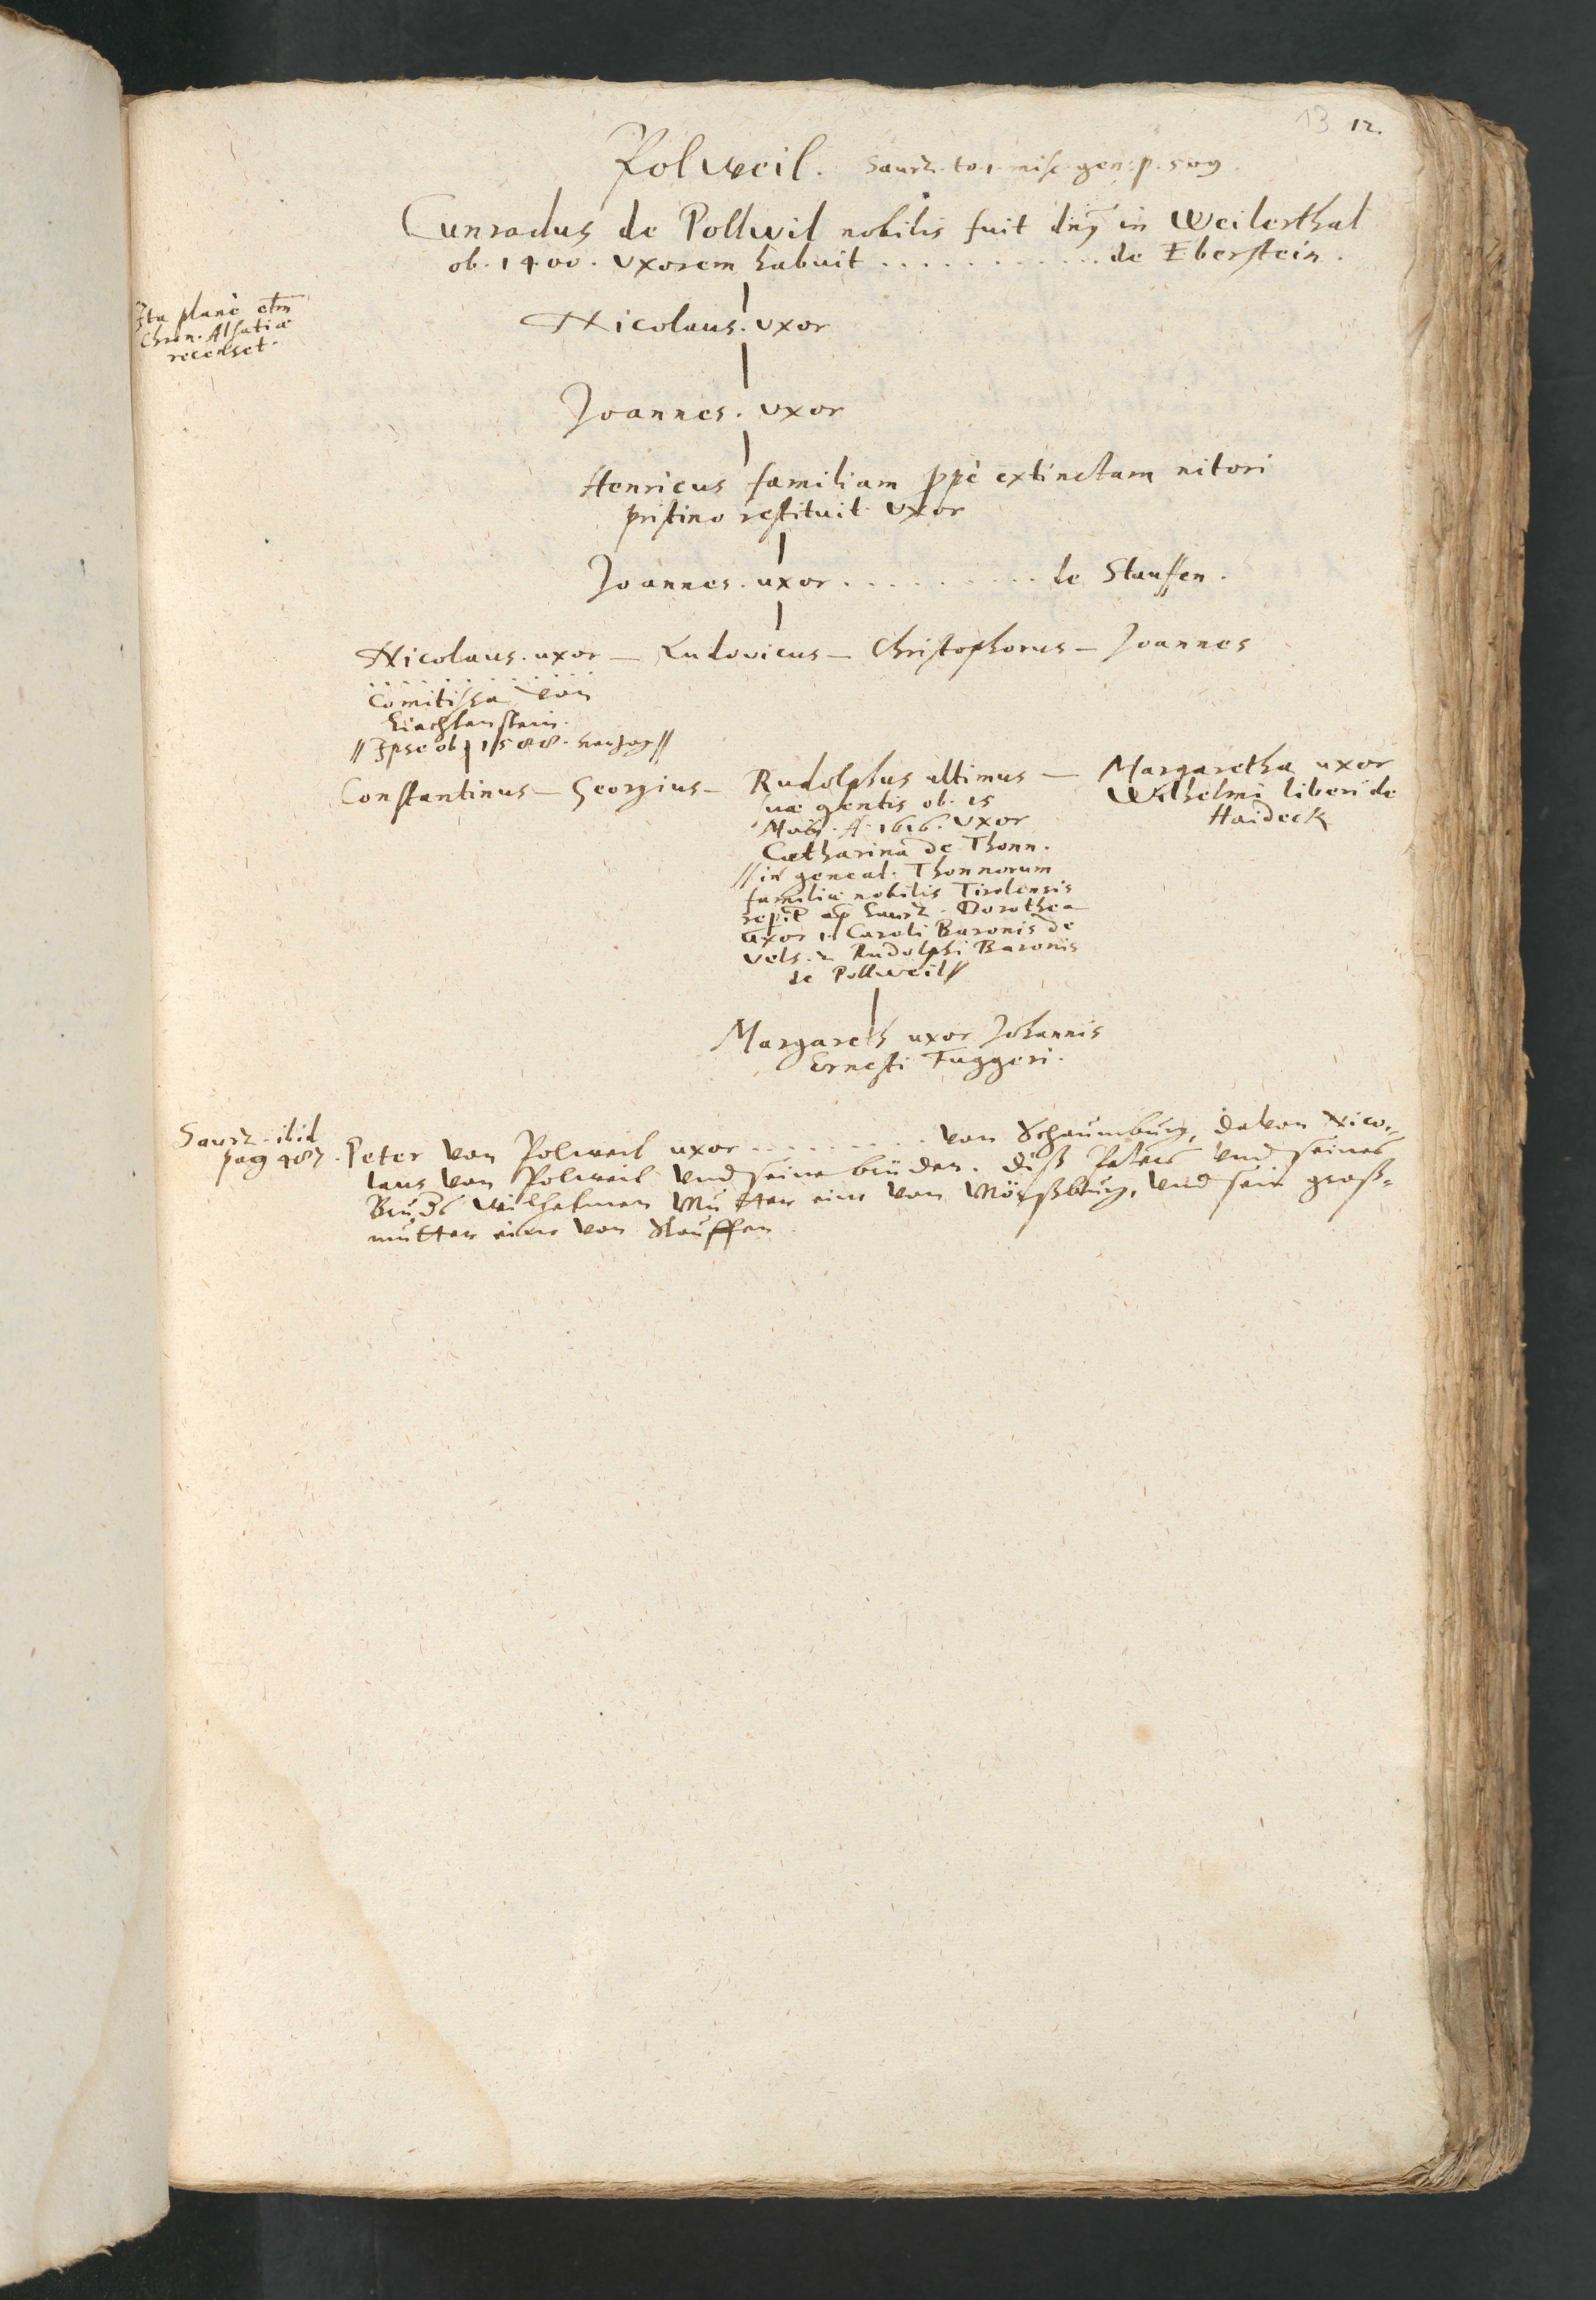 13 12.
Polweil. Saurz. to. 1. misc. gen: p. 509.
Cunradus de Pollwil nobilis fuit dnꝰ in Weilerthal
ob. 1400. Vxorem habuit ............ de Eberstein.
Ita planè etm
Chron. Alsatiæ
recenset.
Nicolaus. vxor
Joannes. vxor
Henricus familiam ppè extinctam nitori
pristino restituit. Vxor
Joannes. uxor .......... de Stauffen.
Nicolaus. uxor — Ludovicus — Christophorus — Joannes
............
Comitissa von
Liechtenstein.
// Ipse ob. 1588. herzog //
Constantinus — Georgius — Rudolphus ultimus — Margaretha uxor
suæ gentis ob. 15 Wilhelmi liberi de
A. 1616. Vxor Haideck
Catharina de Thonn.
// in geneal. Thonnorum
familiæ nobilis Tirolensis
Dorothea
uxor 1. Caroli Baronis de
Vels. 2 Rudolphi Baronis
de Pollweil //
Margareth uxor Johannis
Ernesti Fuggeri.
Saurz. ibid
pag 487. Peter von Polweil uxor .......... von Schaumburg, davon Nico-
laus von Polweil und seine brüder. diß Peters und seines
Mutter eine von Mörßburg, und sein groß-
mutter eine von Stauffen